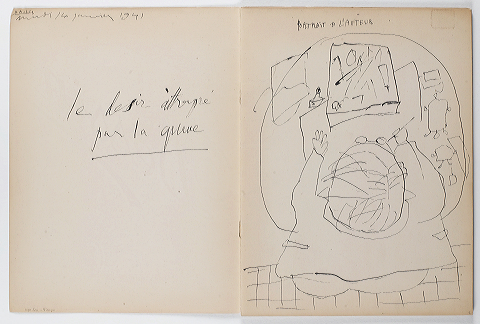 mardi 14 janvier 1941
le desir attrapé
par la queue
PORTRAIT DE L'AUTEUR